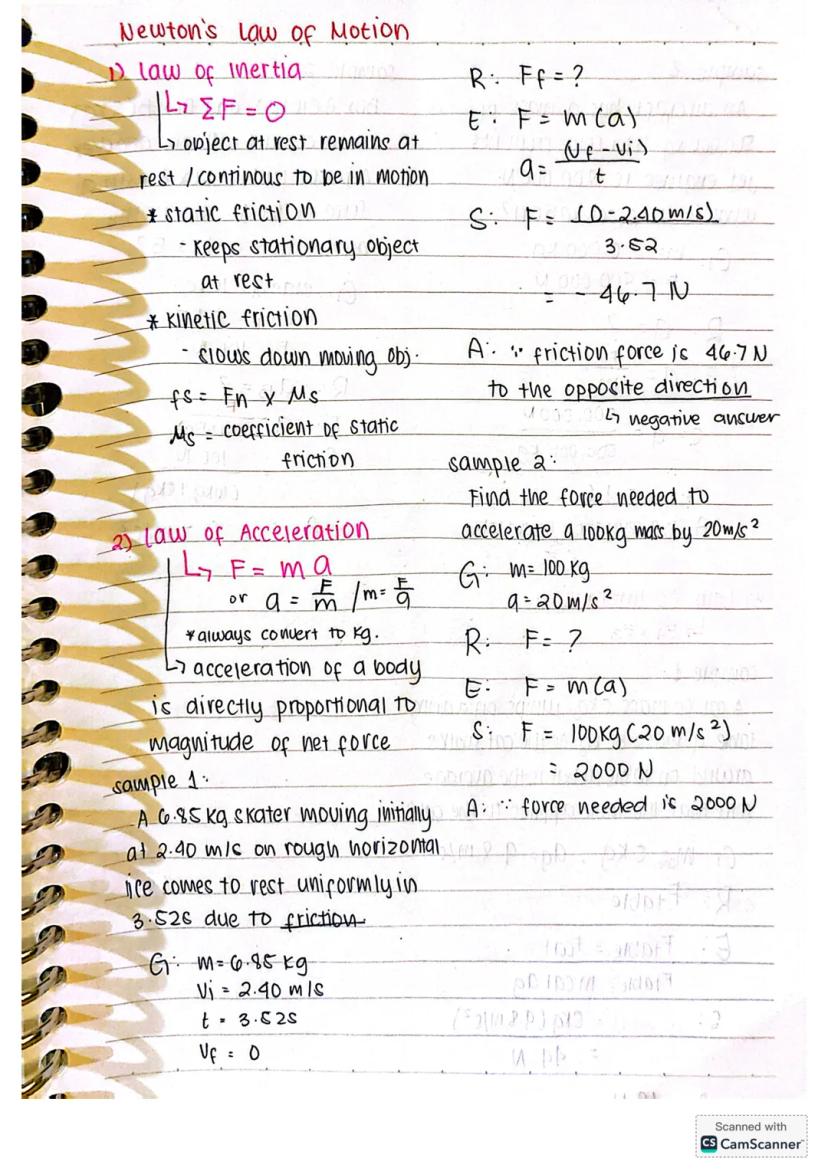 Newton's Law of Motion
1) Law of Inertia
↳ ΣF = 0
↳ object at rest remains at
rest / continous to be in motion
* static friction
- keeps stationary object
at rest
* kinetic friction
- slows down moving obj.
fs = Fn x Ms
Ms = coefficient of static
friction
2) Law of Acceleration
↳ F = ma
or a = F/m / m = F/a
*always convert to kg.
↳ acceleration of a body
is directly proportional to
magnitude of net force
sample 1:
A 6.85 kg skater moving initially
at 2.40 m/s on rough horizontal
ice comes to rest uniformly in
3.52s due to friction
G: m = 6.85 kg
Vi = 2.40 m/s
t = 3.52s
Vf = 0
R: Ff = ?
E: F = m(a)
a = (Vf - Vi)/t
S: F = (0 - 2.40 m/s)
3.52
= - 46.7 N
A: ∵ friction force is 46.7 N
to the opposite direction
↳ negative answer
sample 2:
Find the force needed to
accelerate a 100kg mass by 20m/s²
G: m = 100 kg
a = 20m/s²
R: F = ?
E: F = m(a)
S: F = 100kg (20 m/s²)
= 2000 N
A: ∵ force needed is 2000 N
Scanned with
CS CamScanner